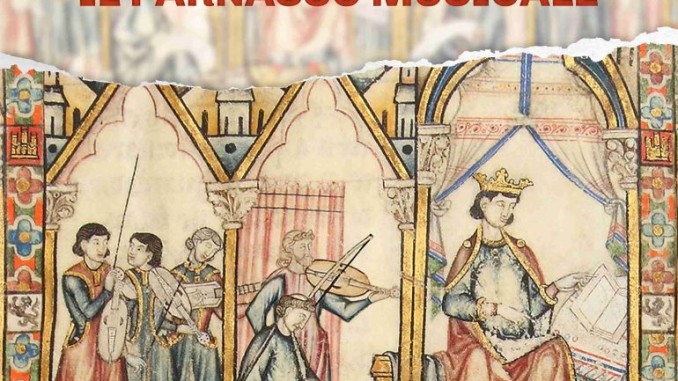 IL PARNASSO MUSICALE